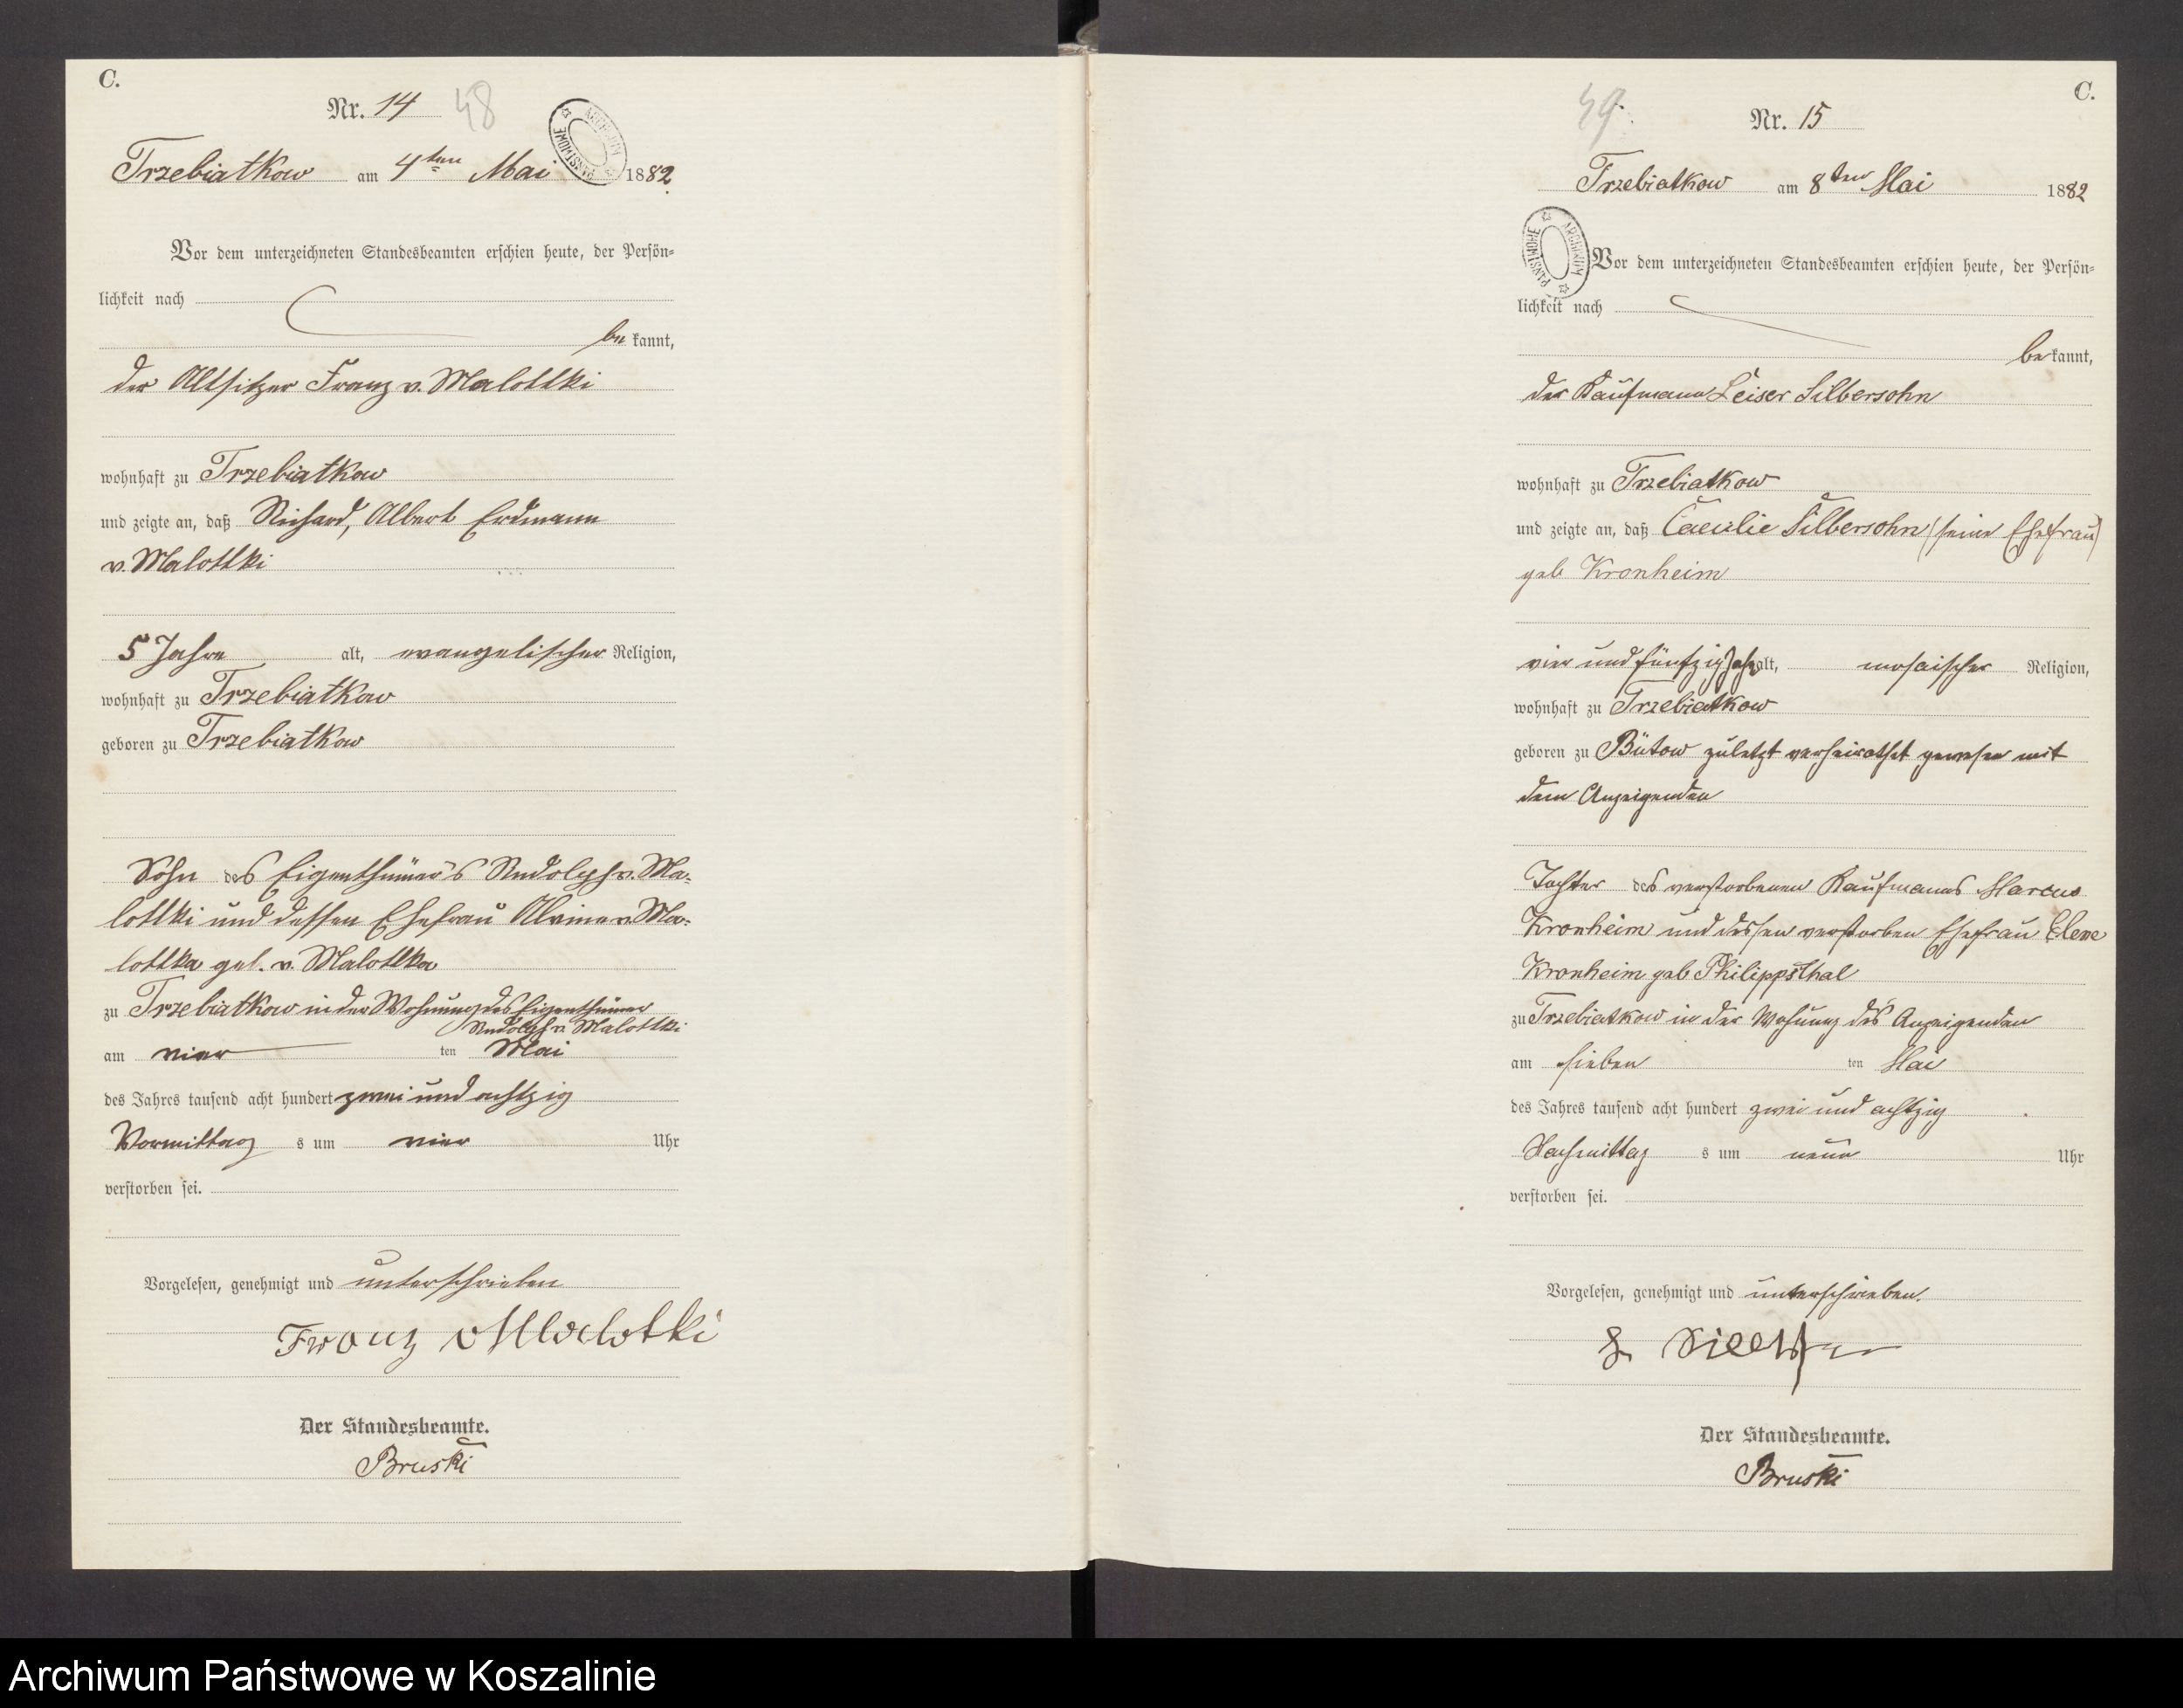 C.
Nr. 14 48
Trzebiatkow am 4ten Mai 1882
Vor dem unterzeichneten Standesbeamten erschien heute, der Persön-
lichkeit nach
be kannt,
der Altsitzer Franz v. Malottki
wohnhaft zu Trzebiatkow
und zeigte an, daß Richard, Albert Erdmann
v. Malottki
5 Jahre alt, evangelischer Religion,
wohnhaft zu Trzebiatkow
geboren zu Trzebiatkow
Sohn des Eigenthümer's Rudolph v. Ma-
lottki und dessen Ehefrau Alvine v. Ma-
lottka geb. v. Malottka
zu Trzebiatkow in der Wohnung des Eigenthümer
Rudolph v. Malottki
am vier ten Mai
des Jahres tausend acht hundert zwei und achtzig
Vormittag s um vier Uhr
verstorben sei.
Vorgelesen, genehmigt und unterschrieben
Franz v Malotki
Der Standesbeamte.
Bruski
C.
49. Nr. 15
Trzebiatkow am 8ten Mai 1882
ARCHIWUM PAŃSTWOWE
Vor dem unterzeichneten Standesbeamten erschien heute, der Persön-
lichkeit nach
be kannt,
der Kaufmann Leiser Silbersohn
wohnhaft zu Trzebiatkow
und zeigte an, daß Caecilie Silbersohn (seine Ehefrau)
geb Kronheim
vier und fünfzig Jahr alt, mosaischer Religion,
wohnhaft zu Trzebiatkow
geboren zu Bütow zuletzt verheirathet gewesen mit
dem Anzeigenden
Tochter des verstorbenen Kaufmanns Marcus
Kronheim und dessen verstorben Ehefrau Elene
Kronheim geb Philippsthal
zu Trzebiatkow in der Wohnung des Anzeigenden
am sieben ten Mai
des Jahres tausend acht hundert zwei und achtzig
Nachmittag s um neun Uhr
verstorben sei.
Vorgelesen, genehmigt und unterschrieben.
Der Standesbeamte.
Bruski
Archiwum Państwowe w Koszalinie